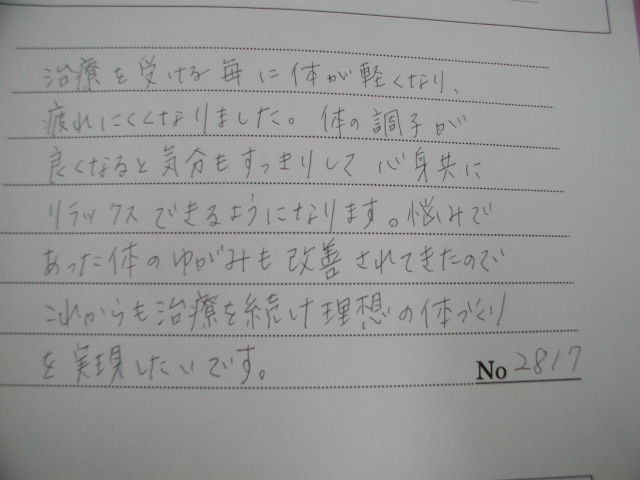 治療を受ける毎に体が軽くなり、
疲れにくくなりました。体の調子が
良くなると気分もすっきりして心身共に
リラックスできるようになります。悩みで
あった体のゆがみも改善されてきたので
これからも治療を続け理想の体づくり
を実現したいです。
No 2817